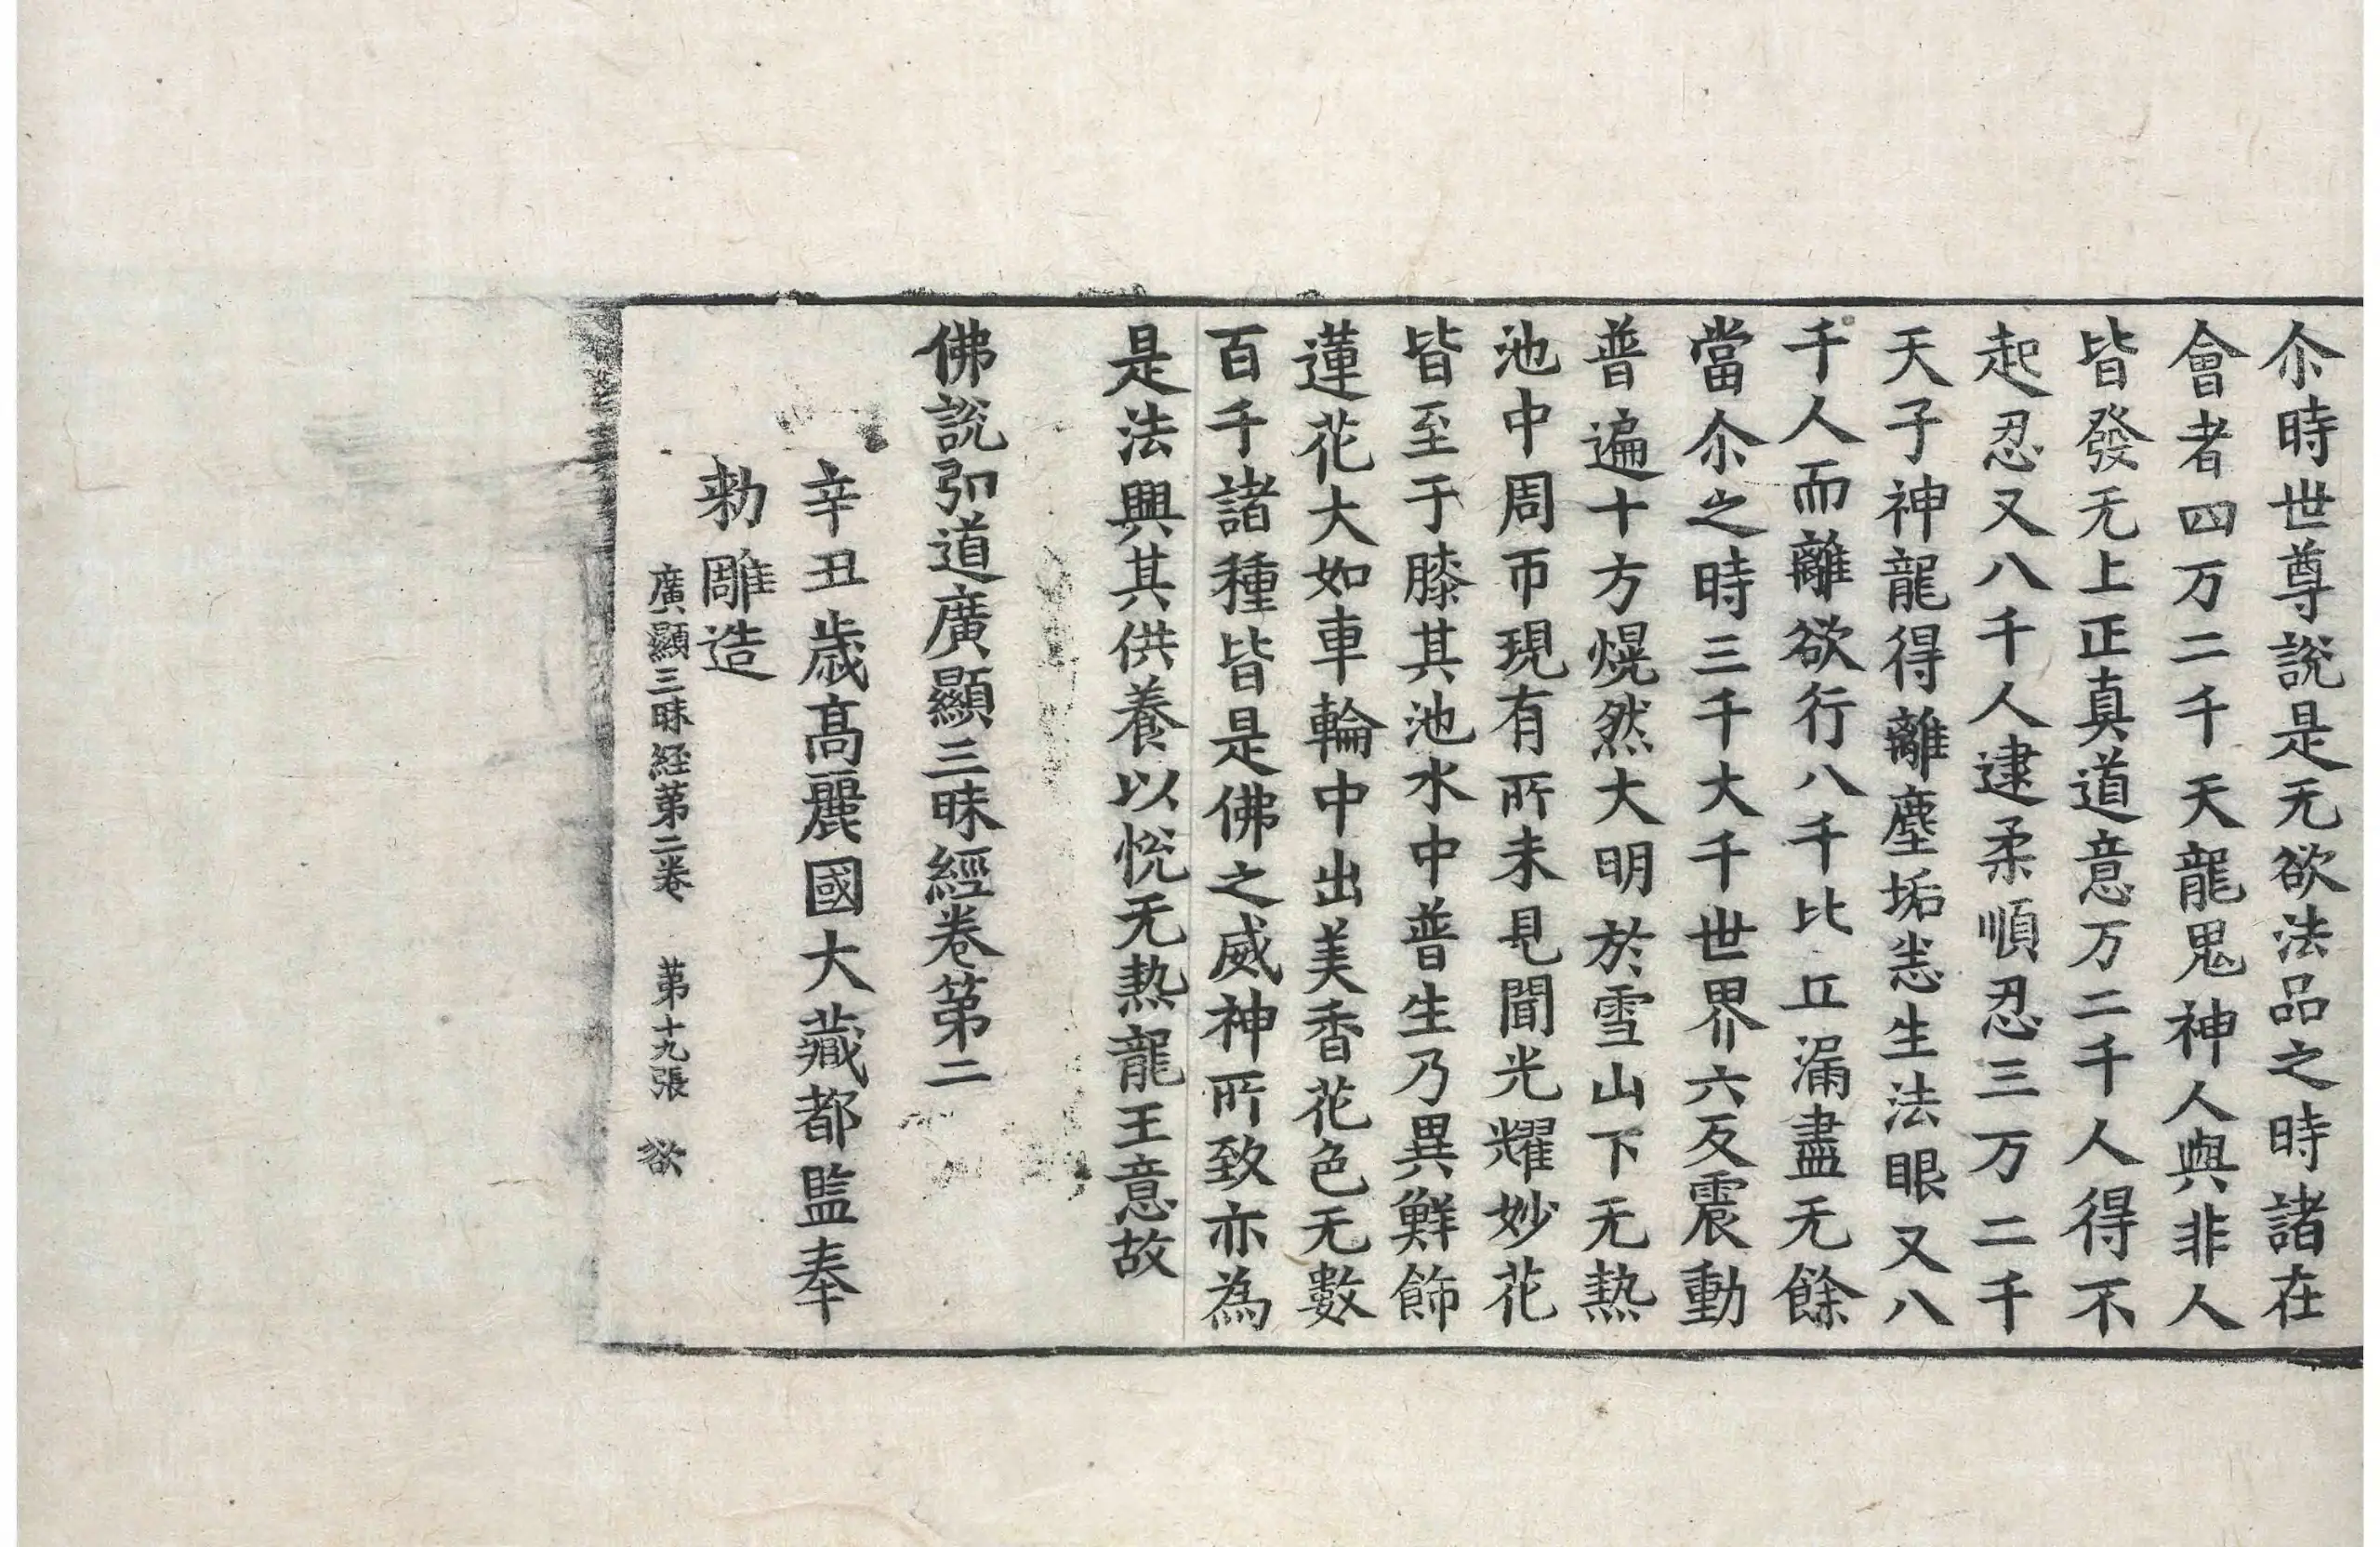 尒時世尊說是无欲法品之時諸在
會者四万二千天龍鬼神人與非人
皆發无上正真道意万二千人得不
起忍又八千人逮柔順忍三万二千
天子神龍得離塵垢恙生法眼又八
千人而離欲行八千比丘漏盡无餘
當尒之時三千大千世界六反震動
普遍十方熀然大明於雪山下无熱
池中周帀現有所未見聞光耀妙花
皆至于膝其池水中普生乃異鮮飾
蓮花大如車輪中出美香花色无數
百千諸種皆是佛之威神所致亦為
是法興其供養以恱无熱龍王意故
佛說弘道廣顯三昧經卷第二
辛丑歲高麗國大藏都監奉
勑雕造
廣顯三昧経第二卷 第十九張 欲